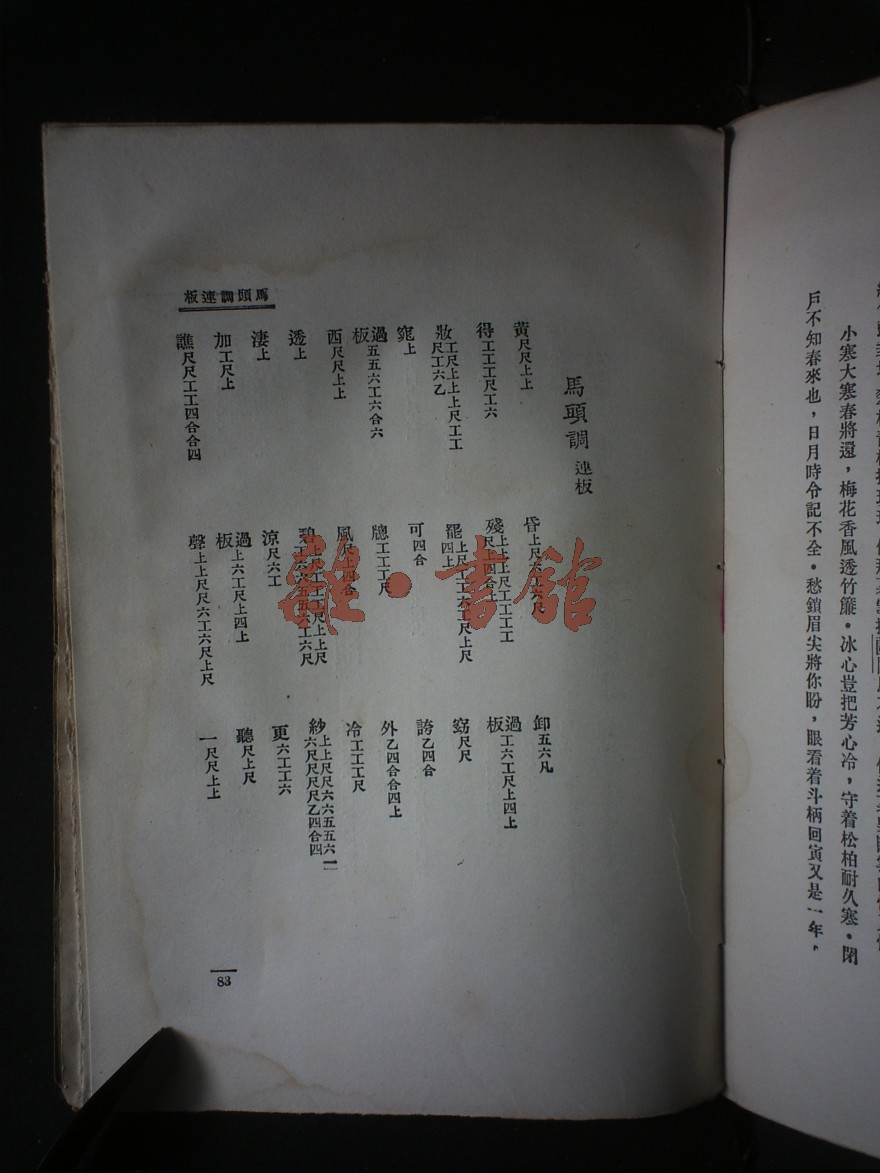 小寒大寒春將還，梅花香風透竹簾．冰心豈把芳心冷，守着松柏耐久寒．閉
戶不知春來也，日月時令記不全．愁鎖眉尖將你盼，眼看着斗柄回寅又是一年，
馬頭調 連板
黃尺尺上上 昏上尺六工六凡 卸五六凡
得工工工尺工六 殘上上上尺工工工工 過板工六工尺上四上
妝工尺上上上尺工工尺工六乙 罷 窈尺尺
窕上 可四合 誇乙四合
過板五五六工六合六 牕工工工尺 外乙四合合四上
西尺尺上上 風尺上四合 冷工工工尺
透上 碧 紗上上尺尺六六五五六六尺尺尺尺乙四合四
淒上 涼尺六工 更六工工六
加工尺上 過板上六工尺上四上 聽尺上尺
譙尺尺工工四合合四 聲上上尺尺六工六尺上尺 一尺尺上上
馬頭調連板
83
雜·書館